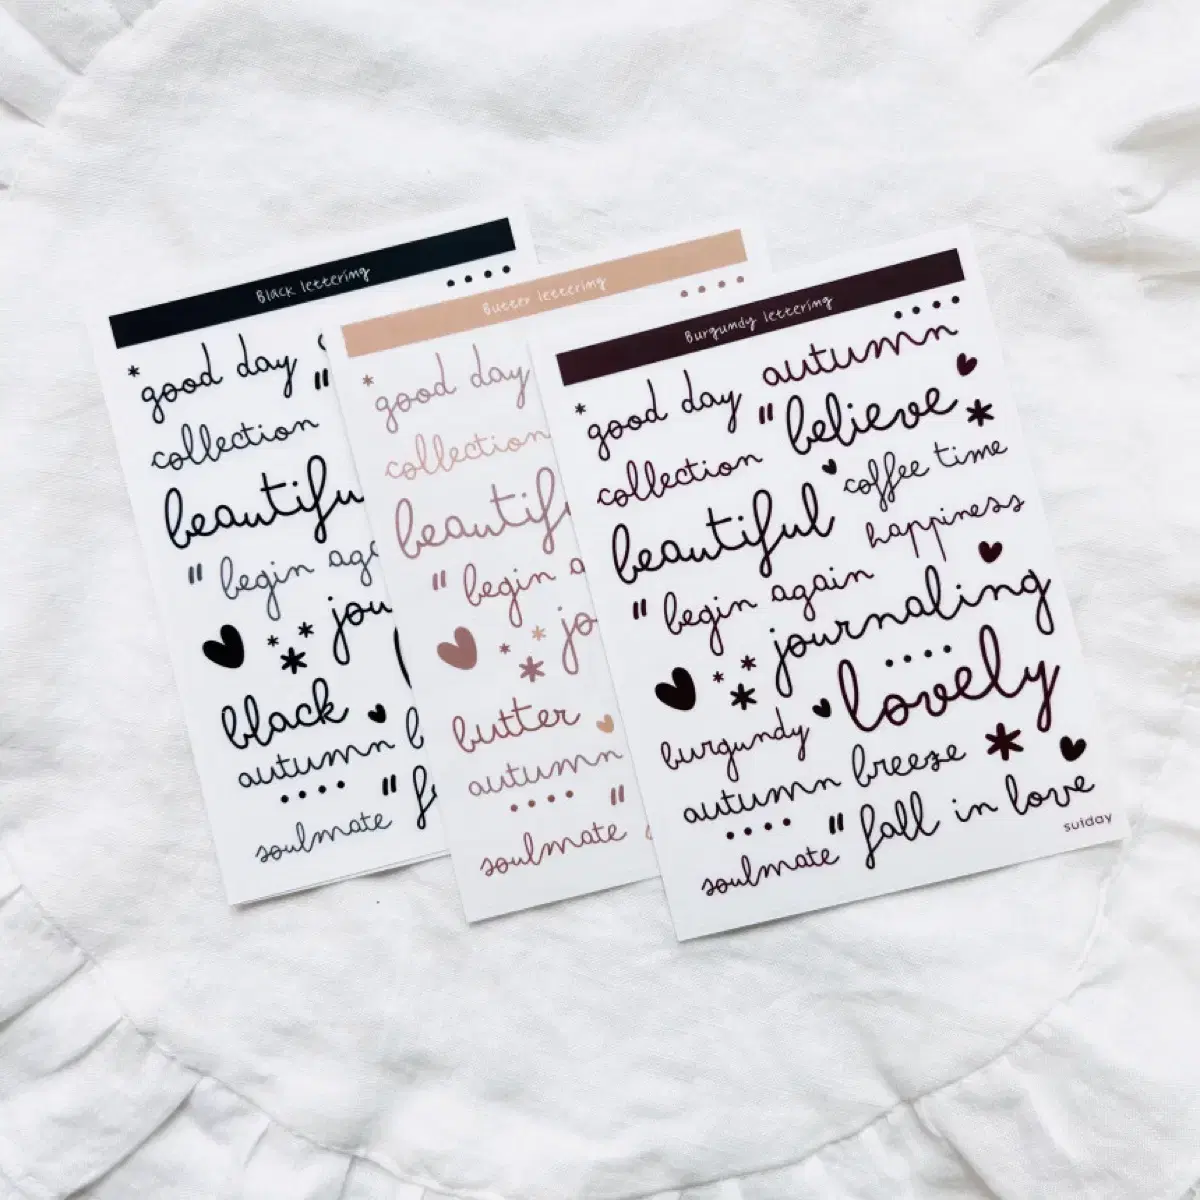 Black lettering
good day
collection
beautifu
"begin aga
jou
black
autumn b
soulmate "f
Butter lettering
good day
collection
beautif
"begin a
jo
butter
autumn
soulmate "
Burgundy lettering
good day autumn
"believe
collection coffee time
beautiful happiness
"begin again
journaling
lovely
burgundy
autumn breeze
soulmate "fall in love
suiday